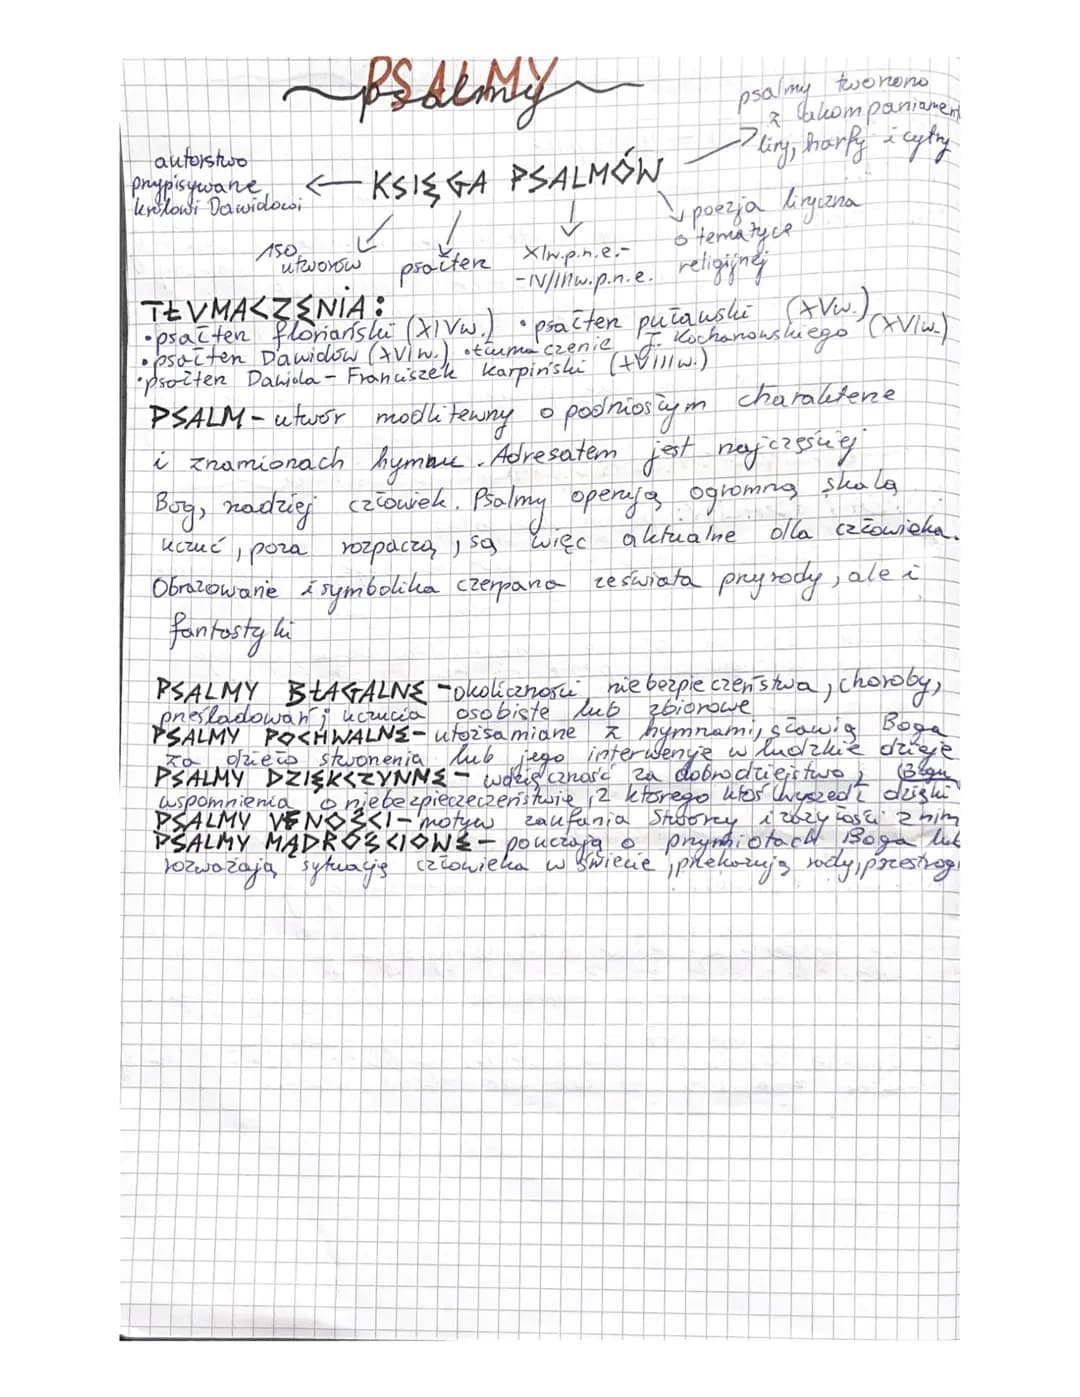 PSALMY
psalmy
psalmy tworzono
z akompaniament
liry, harfy i cytry
autorstwo
przypisywane
królowi Dawidowi
KSIĘGA PSALMÓW
poezja liryczna
o tematyce
religijnej
150
utworów
psałterz
XIw.p.n.e.-
-IV/IIIw.p.n.e.
TŁUMACZENIA:
•psałterz floriański (XIVw.) •psałterz puławski (XVw.)
•psałterz Dawidów (XVIw.) •tłumaczenie J. Kochanowskiego (XVIw.)
•psałterz Dawida - Franciszek Karpiński (XVIIIw.)
PSALM - utwór modlitewny o podniosłym charakterze
i znamionach hymnu. Adresatem jest najczęściej
Bóg, rzadziej człowiek. Psalmy operują ogromną skalą
uczuć, poza rozpaczą, są więc aktualne dla człowieka.
Obrazowanie i symbolika czerpana ze świata przyrody, ale i
fantastyki
PSALMY BŁAGALNE - okoliczności niebezpieczeństwa, choroby,
prześladowań; uczucia osobiste lub zbiorowe
PSALMY POCHWALNE - utożsamiane z hymnami, sławią Boga
za dzieło stworzenia lub jego interwencje w ludzkie dzieje
PSALMY DZIĘKCZYNNE - wdzięczność za dobrodziejstwo,
wspomnienia o niebezpieczeczeństwie, z którego ktoś wyszedł dzięki Bogu
PSALMY UFNOŚCI - motyw zaufania Stwórcy i zażyłości z nim
PSALMY MĄDROŚCIOWE - pouczają o przymiotach Boga lub
rozważają sytuację człowieka w świecie, przekazują rady, przestrogi